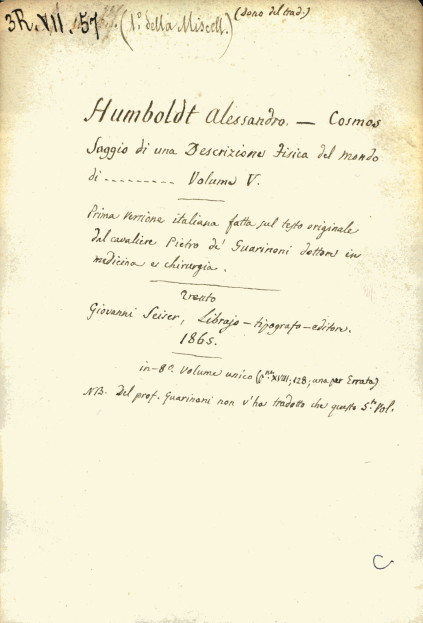 3R.XII.57 (1º della Miscell.) (dono del trad.)
Humboldt Alessandro. — Cosmos
Saggio di una Descrizione Fisica del mondo
di --------- Volume V.
Prima versione italiana fatta sul testo originale
dal cavaliere Pietro de' Guarinoni dottore in
medicina e chirurgia.
Trento
Giovanni Seiser, Librajo-tipografo-editore.
1865.
in-8º. Volume unico (p.ne XVIII; 128; una per Errata)
NB. Del prof. Guarinoni non v'ha tradotto che questo 5.to Vol.
C